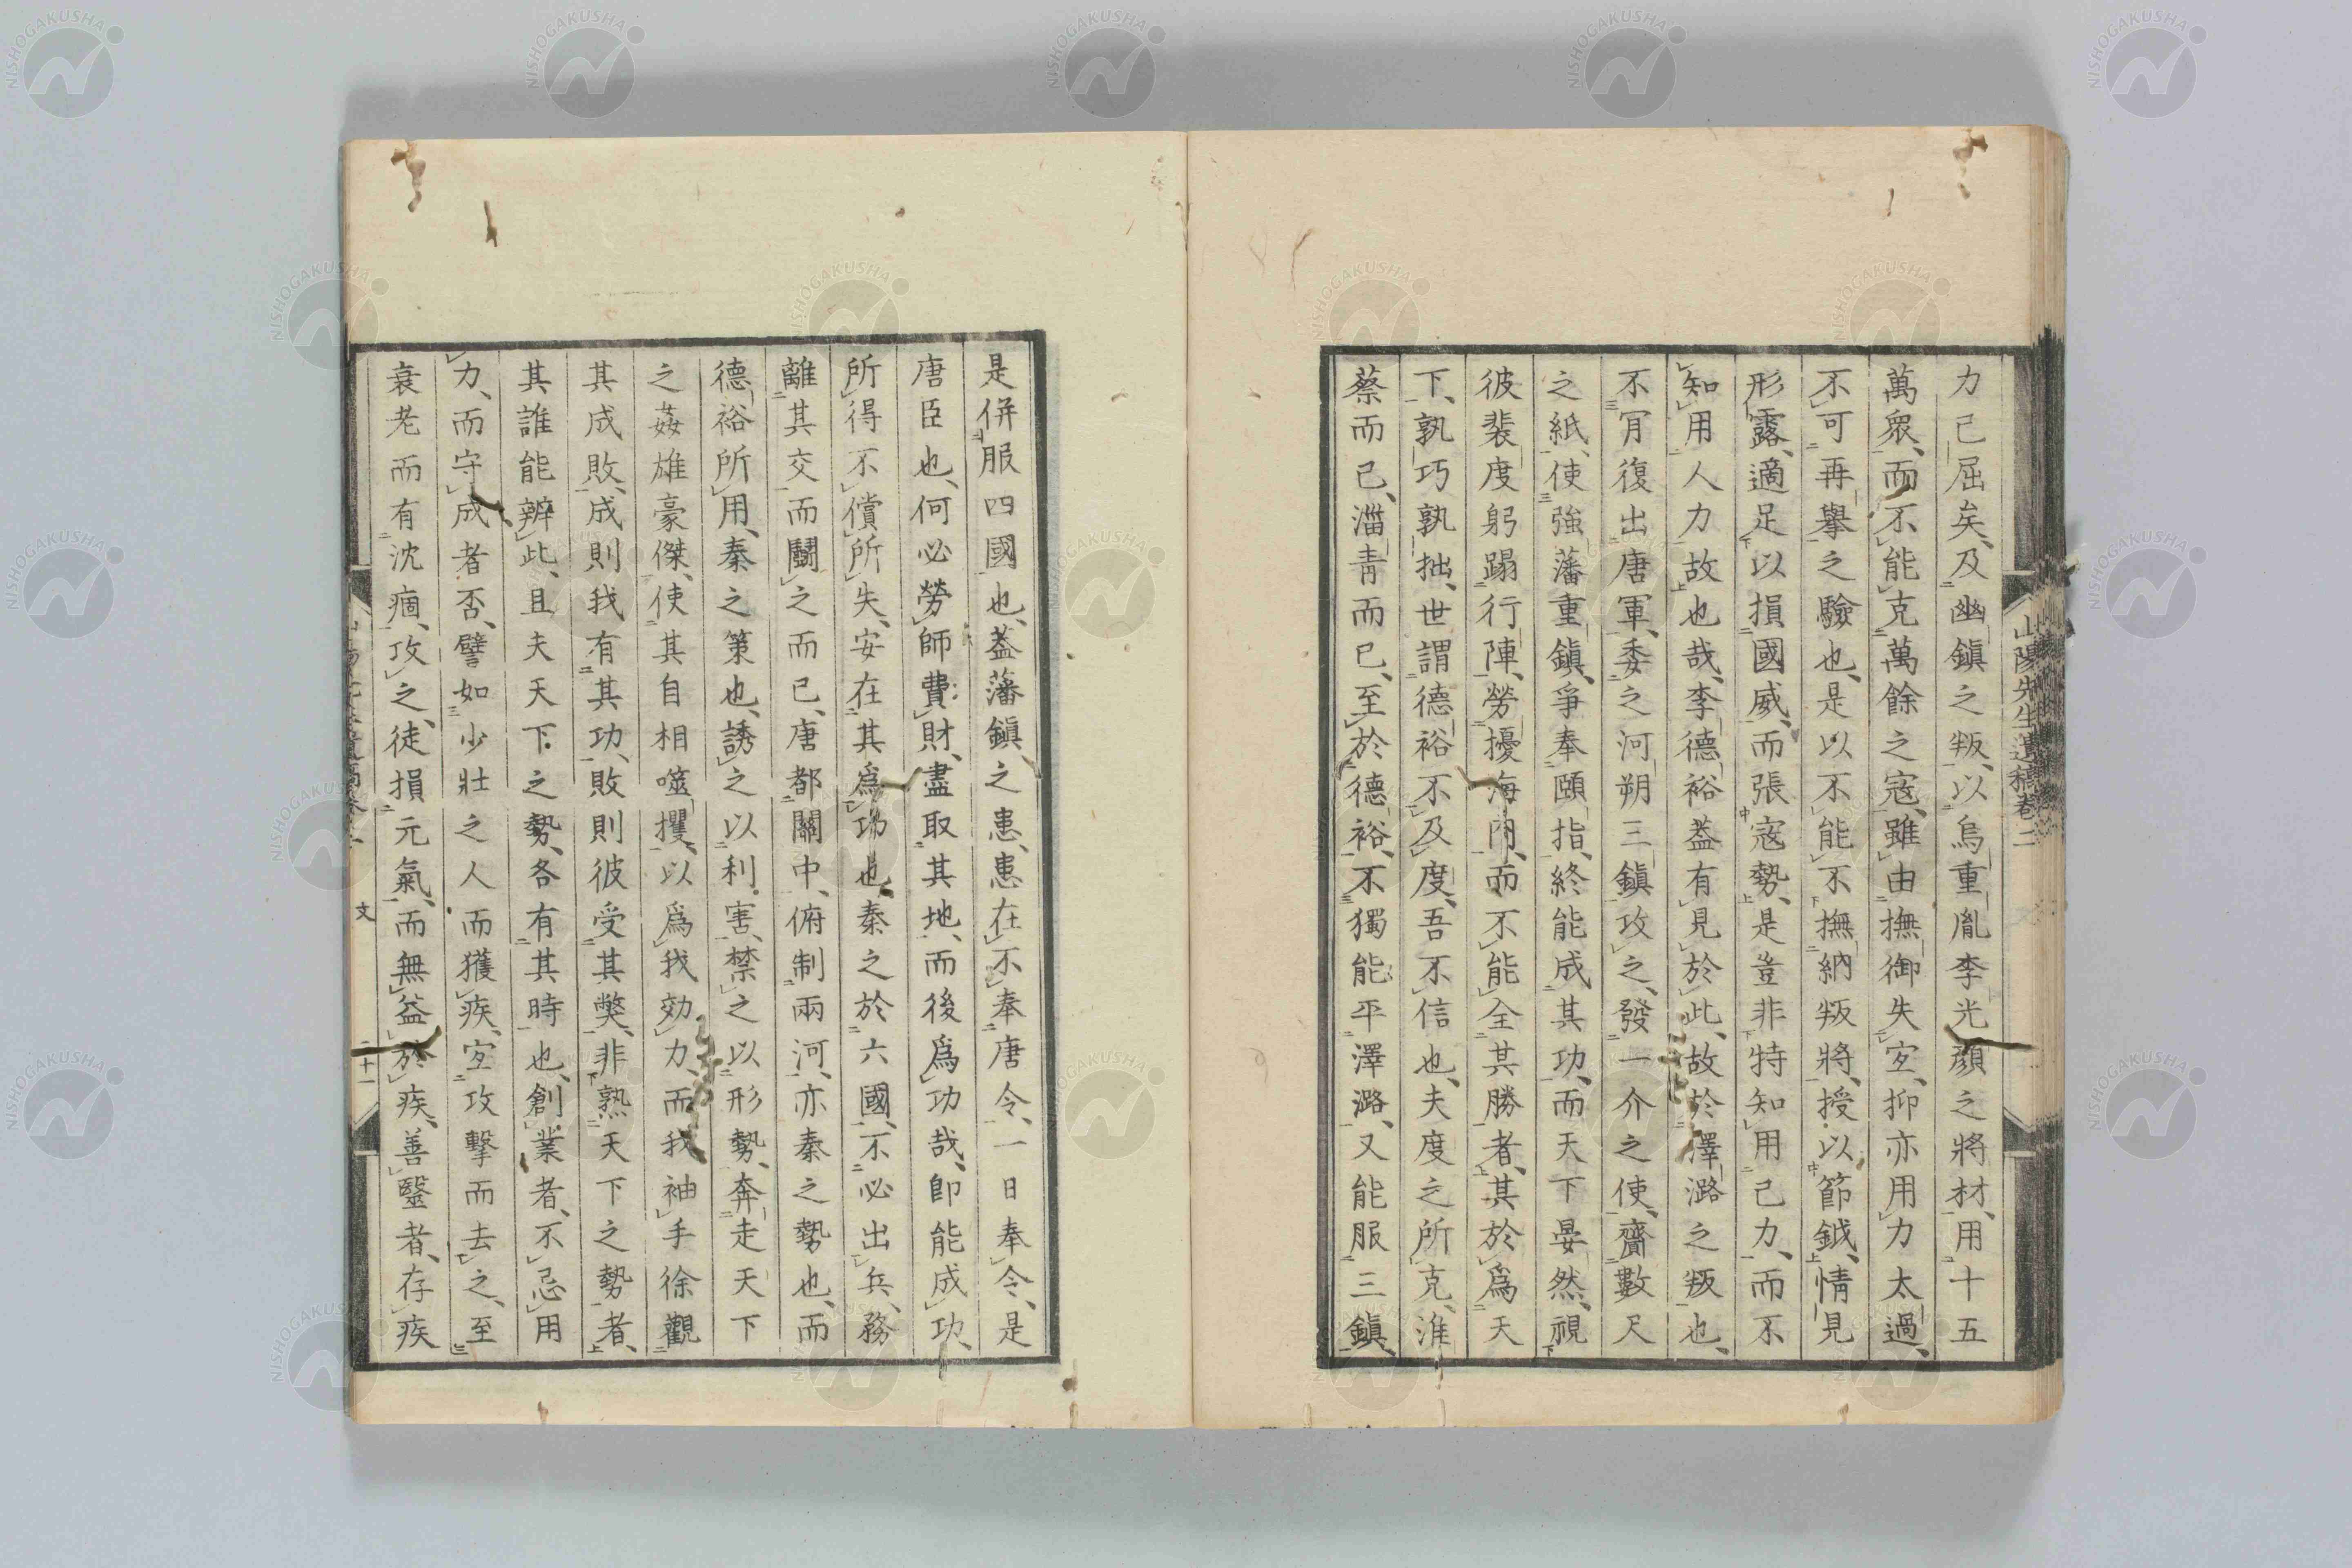 山陽先生遺稿卷二
力已屈矣、及幽鎮之叛、以烏重胤李光顏之將材、用十五
萬衆、而不能克萬餘之寇、雖由撫御失宜、抑亦用力太過、
不可再擧之驗也、是以不能不撫納叛將、授以節鉞、情見
形露、適足以損國威、而張寇勢、是豈非特知用己力、而不
知用人力故也哉、李德裕葢有見於此、故於澤潞之叛也、
不肎復出唐軍、委之河朔三鎮攻之、發一介之使、齎數尺
之紙、使強藩重鎮、爭奉頤指、終能成其功、而天下晏然、視
彼裴度躬蹋行陣、勞擾海內、而不能全其勝者、其於爲天
下、孰巧孰拙、世謂德裕不及度、吾不信也、夫度之所克、淮
蔡而已、淄青而已、至於德裕、不獨能平澤潞、又能服三鎮、
是併服四國也、葢藩鎮之患、患在不奉唐令、一日奉令、是
唐臣也、何必勞師費財、盡取其地、而後爲功哉、卽能成功、
所得不償所失、安在其爲功也、秦之於六國、不必出兵、務
離其交而鬭之而已、唐都關中、俯制兩河、亦秦之勢也、而
德裕所用、秦之策也、誘之以利害、禁之以形勢、奔走天下
之姦雄豪傑、使其自相噬攫、以爲我効力、而我袖手徐觀
其成敗、成則我有其功、敗則彼受其弊、非熟天下之勢者、
其誰能辨此、且夫天下之勢、各有其時也、創業者、不忌用
力、而守成者否、譬如少壯之人而獲疾、宜攻擊而去之、至
衰老而有沈痼、攻之、徒損元氣、而無益於疾、善毉者、存疾
文
二十一